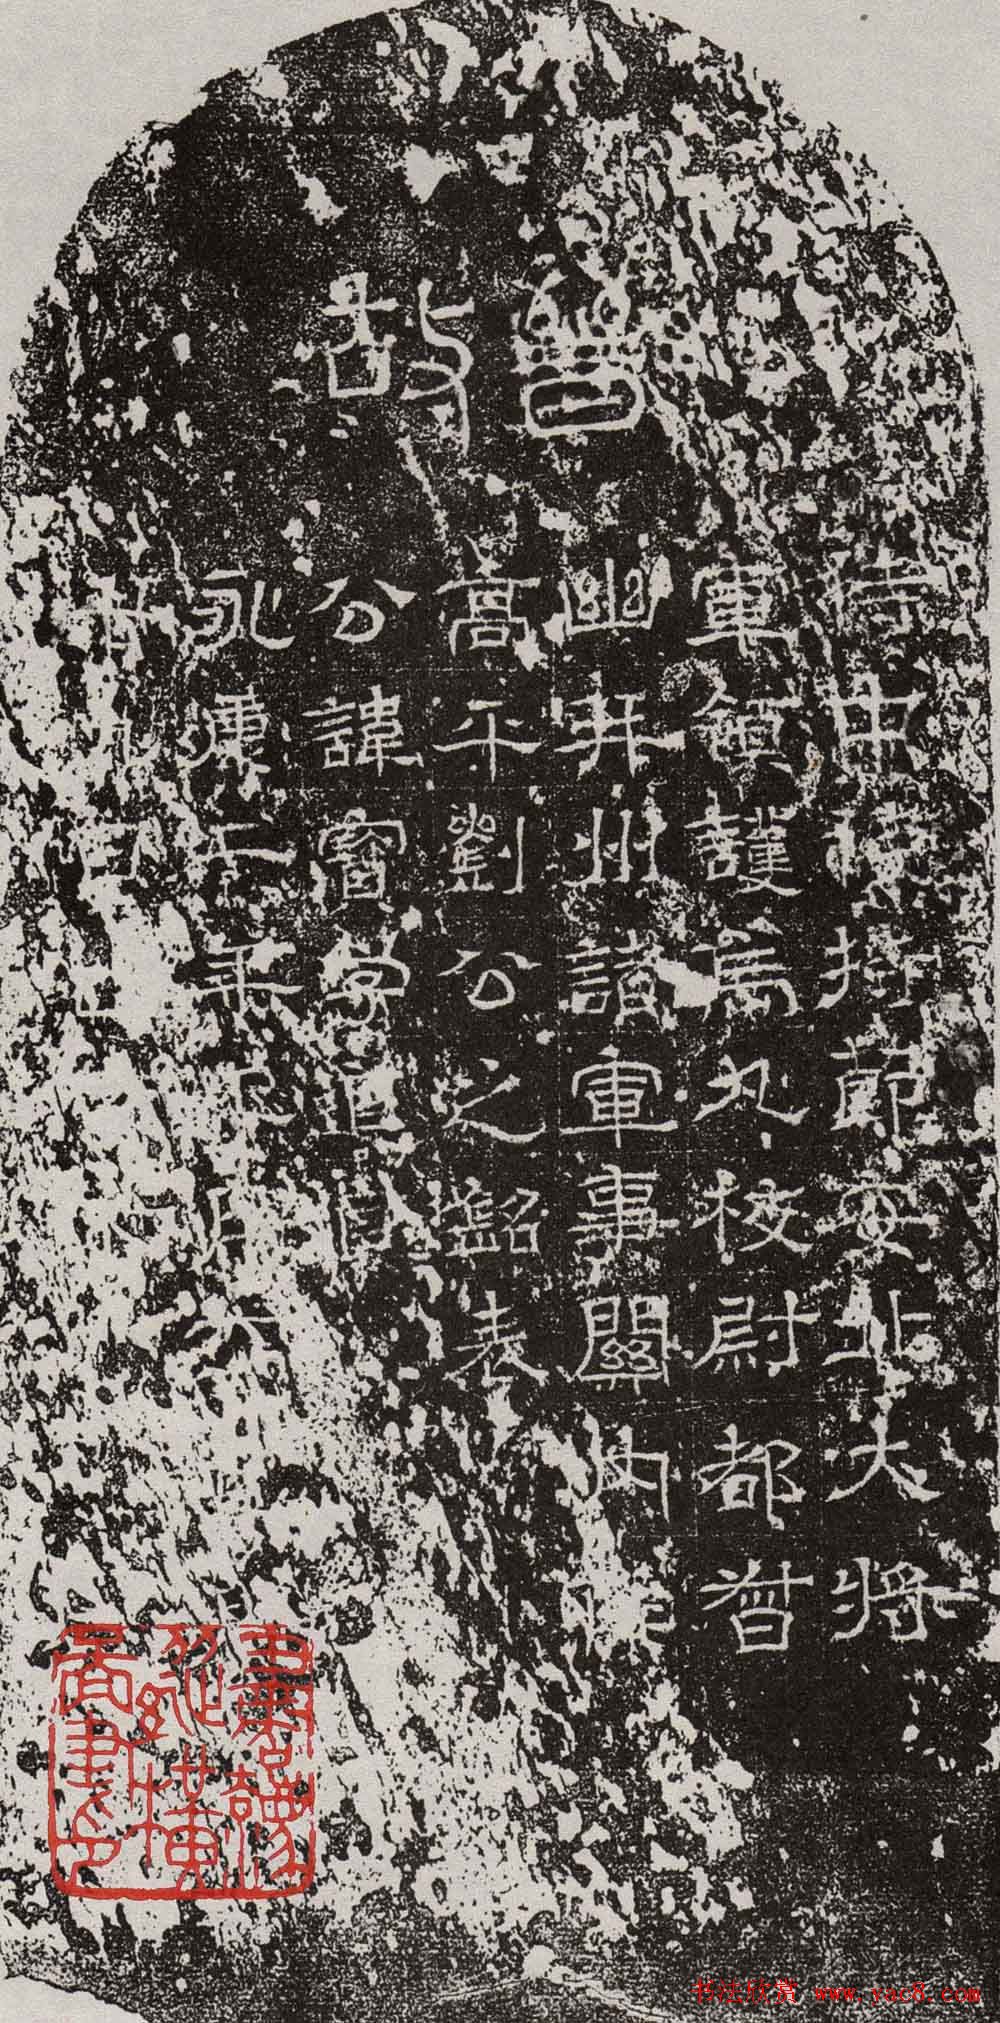 晉故
侍中使持節安北大將
軍領護烏丸校尉都督
幽并州諸軍事關內侯
高平劉公之墓表
公諱寶字道真
永康二年正月廿
書法欣賞 www.yac8.com